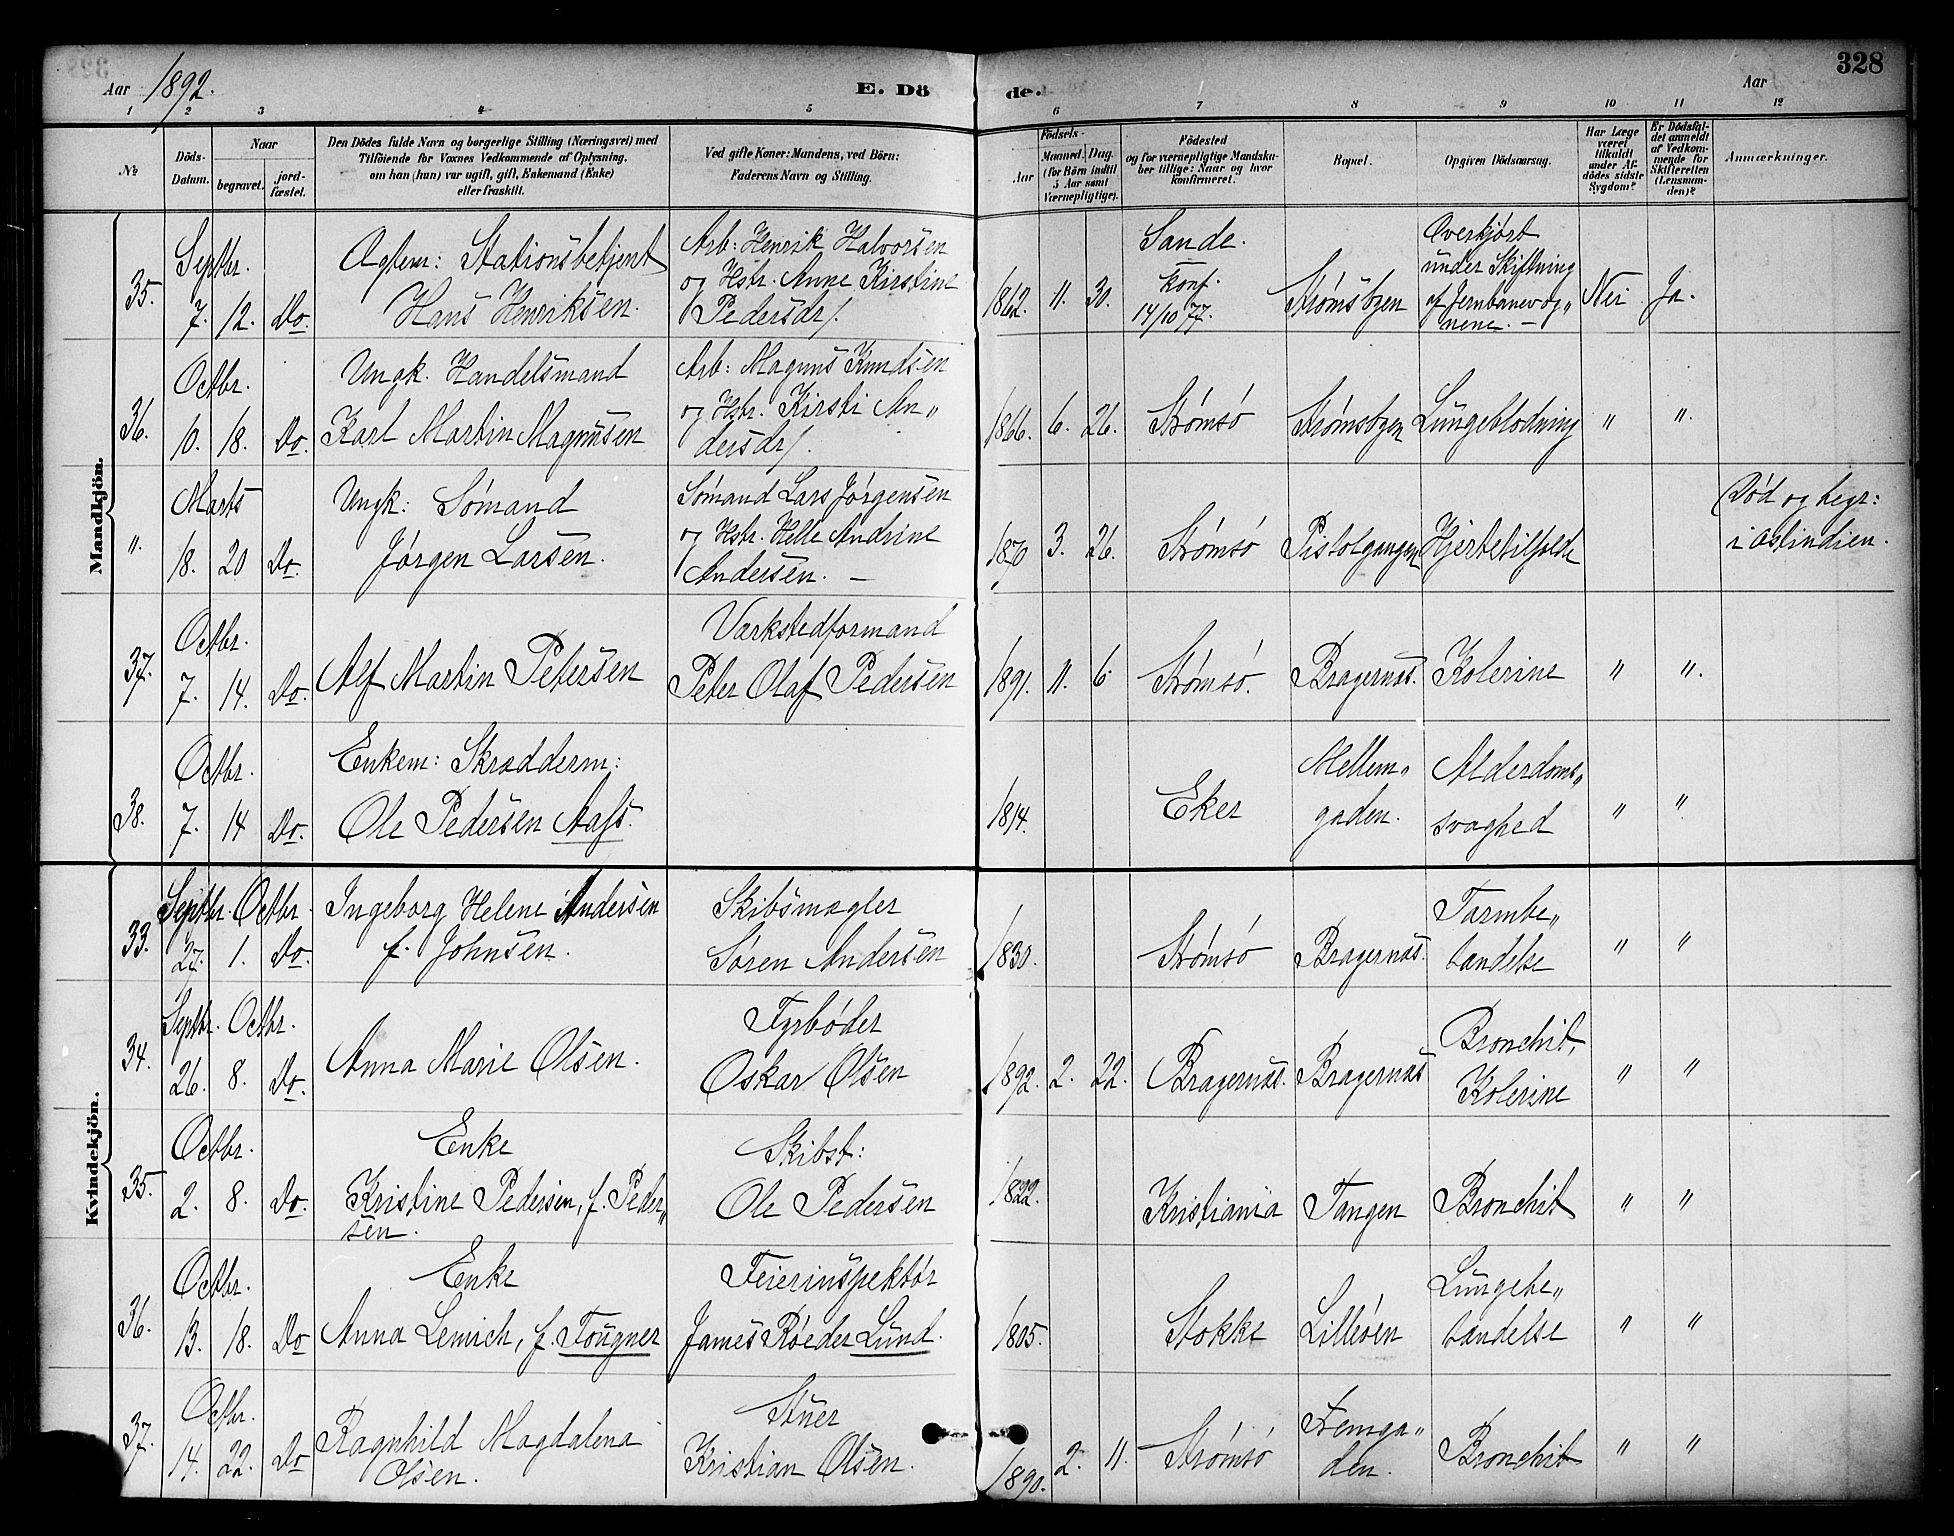 Aar 1892. E. Dö de. Aar 328
1 2 3 4 5 6 7 8 9 10 11 12
№
Döds-Datum.
Naar begravet. jord-fæstet.
Den Dödes fulde Navn og borgerlige Stilling (Næringsvei) med Tilföiende for Voxnes Vedkommende af Oplysning, om han (hun) var ugift, gift, Enkemand (Enke) eller fraskilt.
Ved gifte Koner: Mandens, ved Börn: Faderens Navn og Stilling.
Födsels- Aar Maaned. Dag. (for Börn indtil 5 Aar samt Værnepligtige).
Födested og for værnepligtige Mandskaber tillige: Naar og hvor konfirmeret.
Bopæl.
Opgiven Dödsaarsag.
Har Læge været tilkaldt under Afdödes sidste Sygdom?
Er Dödsfaldet anmeldt af Vedkommende for Skifteretten (Lensmanden)?
Anmærkninger.
Mandkjön.
35. Septbr. 7. 12. Do. Ægtem: Stationsbetjent Hans Henriksen. Arb: Henrik Halvorsen og Hstr. Anne Kirstine Pedersdr/. 1862. 11. 30. Sande. Konf. 14/10 77. Strømsbgen Overkjørt under Skiftning af Jernbanevog„nene. – Nei Ja.
36. Octbr. 10. 18. Do. Ungk. Handelsmand Karl Martin Magnusen Arb: Magnus Knudsen og Hstr. Kirsti An„dersdr/. 1866. 6. 26. Strømsø Strømsbgen Lungeblødning " ".
". Marts 18. 20 Do. Ungk: Sømand Jørgen Larsen. Sømand Lars Jørgensen og Hstr. Helle Andrine Andersen. – 1870 3. 26. Strømsø Pistolgangen Hjertetilfælde Død og begr: i Ostindien.
37. Octbr. 7. 14. Do. Alf Martin Petersen Værkstedformand Peter Olaf Pedersen 1891. 11. 6. Strømsø. Bragernæs. Kolerine " ".
38. Octbr. 7. 14 Do. Enkem: Skrædderm: Ole Pedersen Aass. 1814. Eker Mellem„gaden. Alderdoms„svaghed " "
Kvindekjön.
33. Septbr. 27. Octbr. 1. Do. Ingeborg Helene Andersen f. Johnsen. Skibsmægler Søren Andersen 1830. Strømsø Bragernæs. Tarmbe„tændelse " "
34. Septbr. 26. Octbr. 8. Do. Anna Marie Olsen. Fyrbøder Oskar Olsen 1892. 2. 22. Bragernæs. Bragernæs Bronchit, Kolerine " "
35. Octbr. 2. 8. Do. Enke Kristine Pedersen, f. Peder„sen. Skibst: Ole Pedersen 1822. Kristiania Tangen Bronchit " "
36. Octbr. 13. 18. Do Enke Anna Lemich, f. Tougner Feierinspektør James Røeder Lund. 1805. Stokke Lilleøen Lungebe„tændelse " "
37. Octbr. 14. 22. Do Ragnhild Magdalena Olsen. Stuer Kristian Olsen. 1890. 2. 11. Strømsø Fremga„den. Bronchit " "